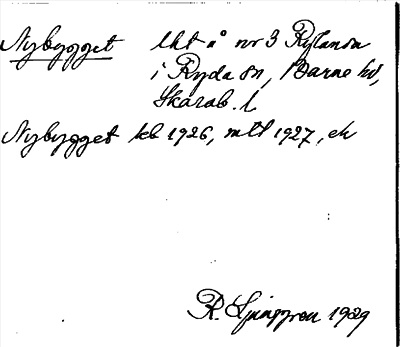 Nybygget lht å nr 3 Rylanda
i Ryda sn, Barne hd,
Skarab. l
Nybygget kb 1926, mtl 1927, ek
R. Ljunggren 1929